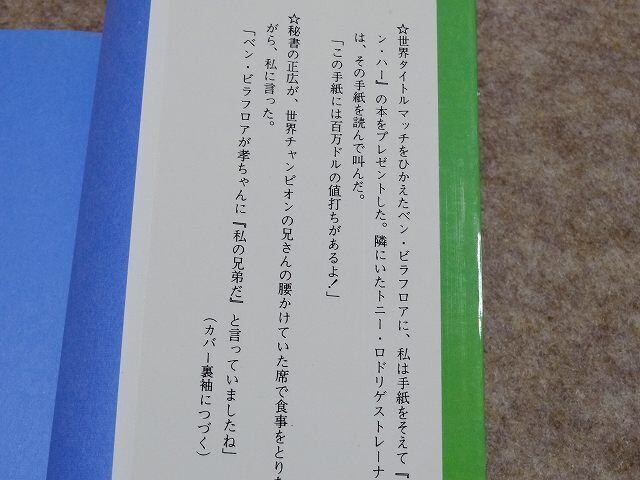 ☆世界タイトルマッチをひかえたベン・ビラフロアに、私は手紙をそえて『
ン・ハー』の本をプレゼントした。隣にいたトニー・ロドリゲストレーナ
は、その手紙を読んで叫んだ。
「この手紙には百万ドルの値打ちがあるよ！」
☆秘書の正広が、世界チャンピオンの兄さんの腰かけていた席で食事をとりな
がら、私に言った。
「ベン・ビラフロアが孝ちゃんに『私の兄弟だ』と言っていましたね」
（カバー裏袖につづく）